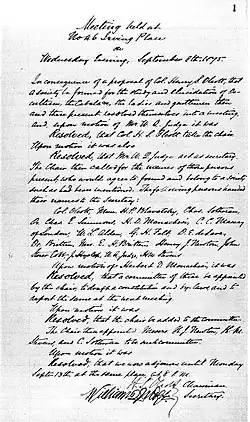 1
Meeting held at
No 46 Irving Place
on
Wednesday Evening, September 8th 1875.
In consequence of a proposal of Col. Henry S. Olcott, that
a Society be formed for the study and elucidation of Oc-
cultism, the Cabala &c, the ladies and gentlemen then
and there present resolved themselves into a meeting
and, upon motion of Mr W. Q. Judge it was
Resolved, that Col H. S. Olcott take the chair.
Upon motion it was also
Resolved, that Mr W. Q. Judge act as secretary.
The Chair then called for the names of those persons
present, who would agree to found and belong to a Society
such as had been mentioned. The following persons handed
their names to the Secretary:
Col. Olcott, Mme H. P. Blavatsky, Chas. Sotheran,
Dr. Chas. E. Simmons, H. D. Monachesi, C. C. Massey
of London, W. L. Alden, G. H. Felt, D. E. de Lara,
Dr. Britten, Mrs. E. H. Britten, Henry J. Newton, John
Storer Cobb, J. Hyslop, W. Q. Judge, H. M. Stevens
Upon motion of Herbert D. Monachesi it was
Resolved, that a committee of three be appointed
by the chair, to draft a constitution and by laws and to
report the same at the next meeting.
Upon motion it was
Resolved, that the chair be added to the committee.
The Chair then appointed Messrs H. J. Newton, H. M.
Stevens, and C. Sotheran to be such committee.
Upon motion it was
Resolved, that we now adjourn until Monday
Septr. 13th at the same place, at 8 P.M.
H. S. Olcott Chairman
William Q Judge
Secretary.